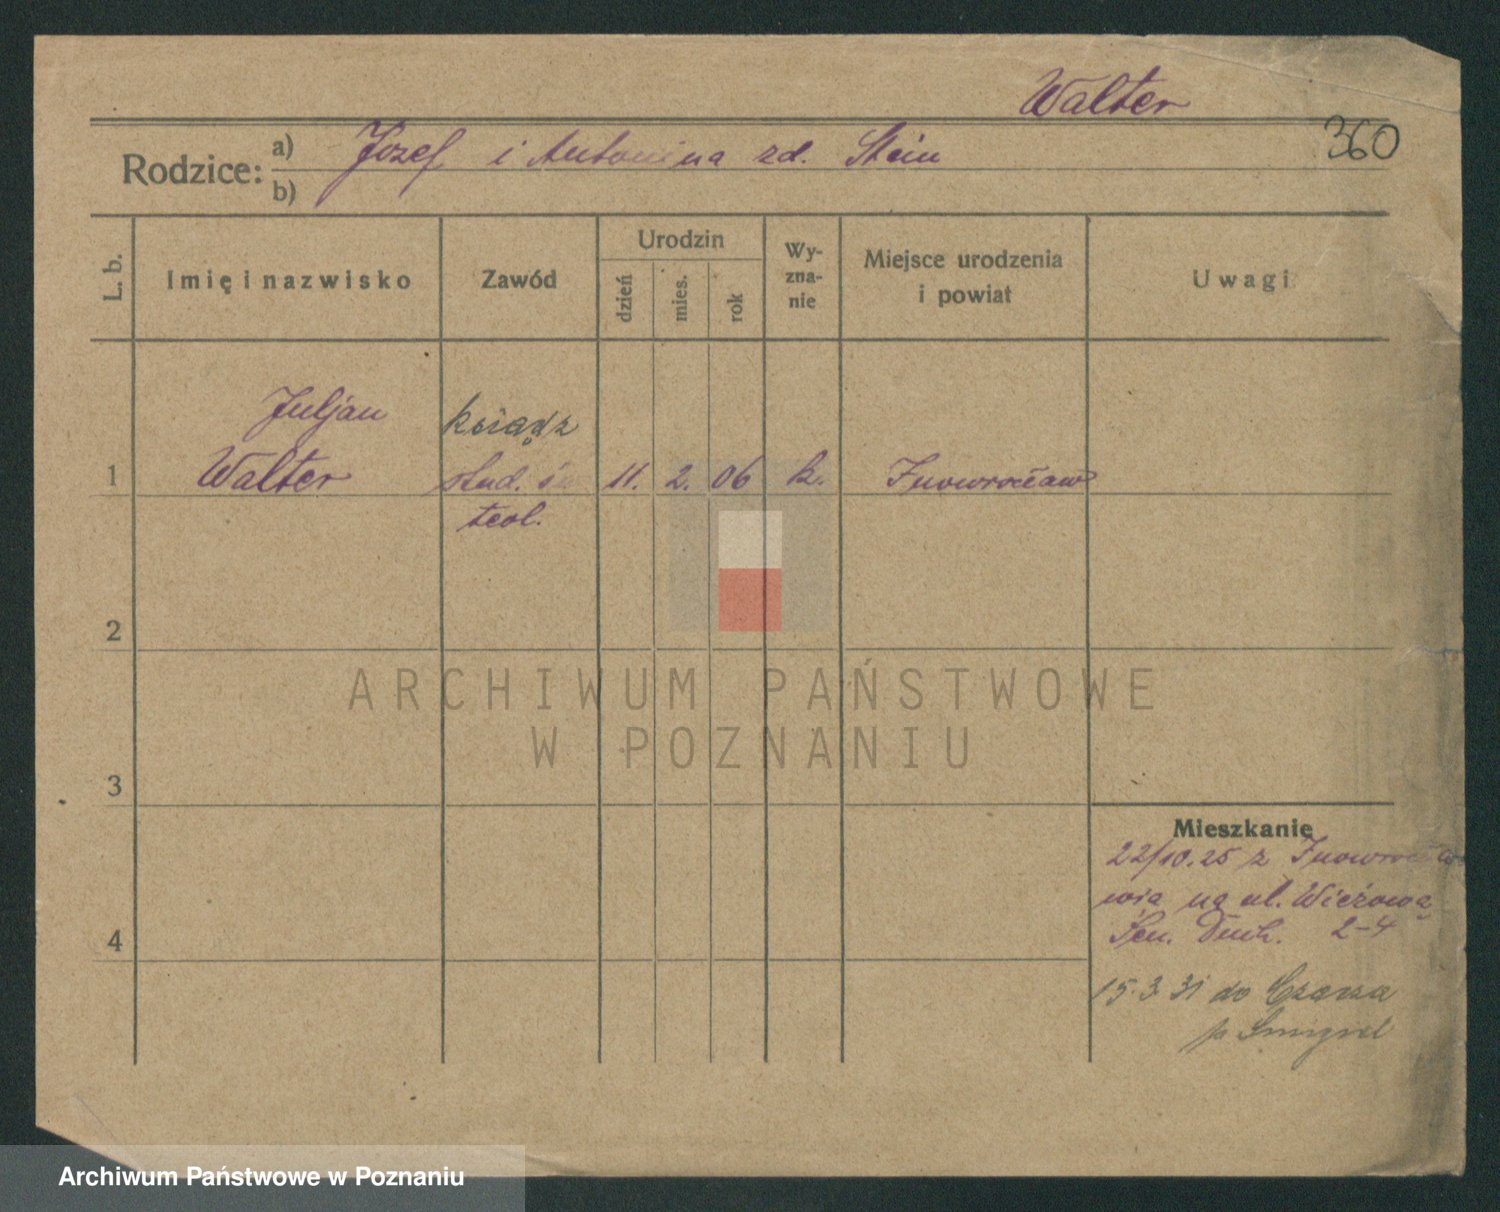 Walter
360
Rodzice: a) Józef i Antonina zd. Stein
b)
L. b.
Imię i nazwisko
Zawód
Urodzin
dzień
mies.
rok
Wy-
zna-
nie
Miejsce urodzenia
i powiat
Uwagi
Juljan
ksiądz
1 Walter stud. 11. 2. 06 k. Inowrocław
teol.
2
ARCHIWUM PAŃSTWOWE
W POZNANIU
3
Mieszkanie
22/10.25 z Inowrocła
wia na ul. Wieżową
Sem. Duch. 2-4
4
15.3.31 do Czacza
p Śmigiel
Archiwum Państwowe w Poznaniu